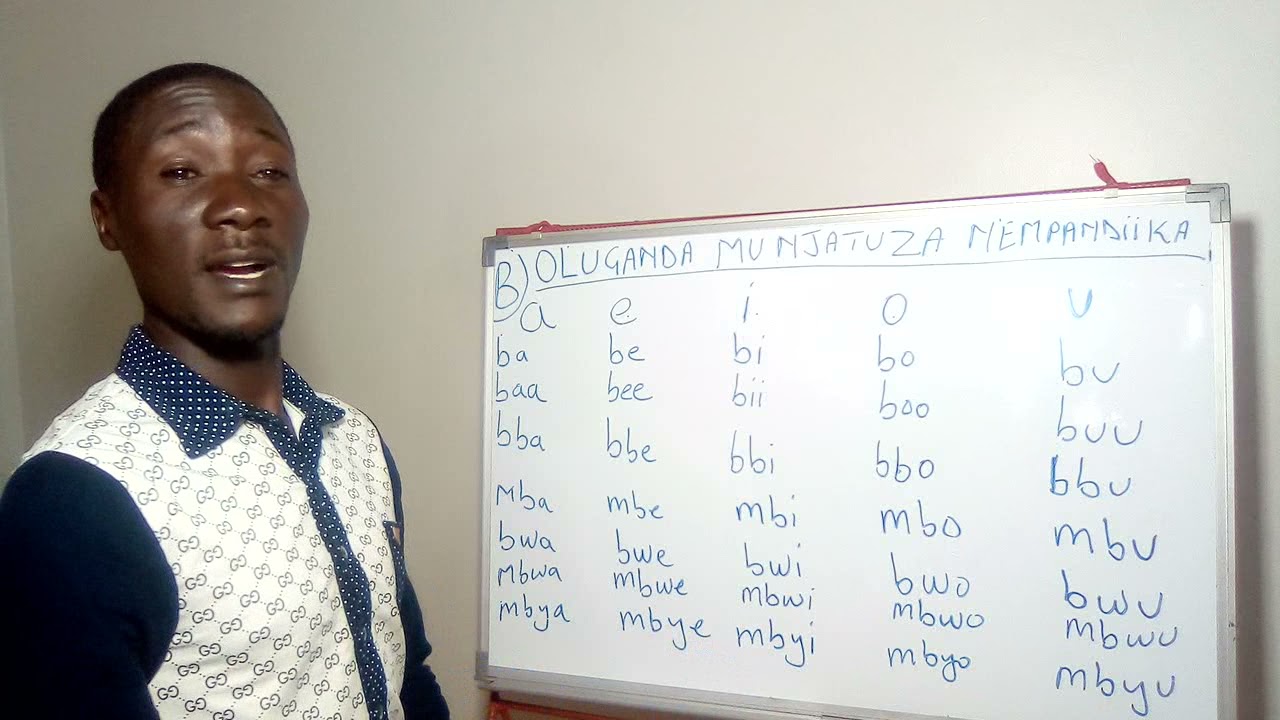 B) OLUGANDA MU NJATUZA N'EMPANDIIKA
a e i o u
ba be bi bo bu
baa bee bii boo buu
bba bbe bbi bbo bbu
Mba mbe mbi mbo mbu
bwa bwe bwi bwo bwu
Mbwa mbwe mbwi mbwo mbwu
mbya mbye mbyi mbyo mbyu